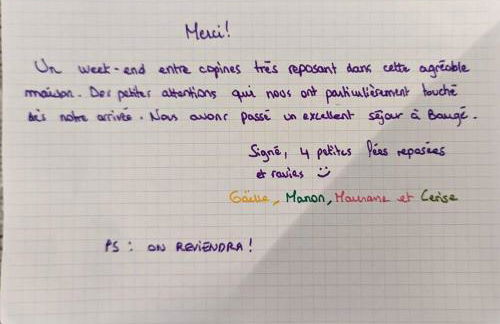 Merci!
Un week-end entre copines très reposant dans cette agréable
maison. Des petites attentions qui nous ont particulièrement touché
dès notre arrivée. Nous avons passé un excellent séjour à Baugé.
Signé, 4 petites fées reposées
et ravies :)
Gaëlle, Manon, Maurane et Cerise
PS : ON REVIENDRA!